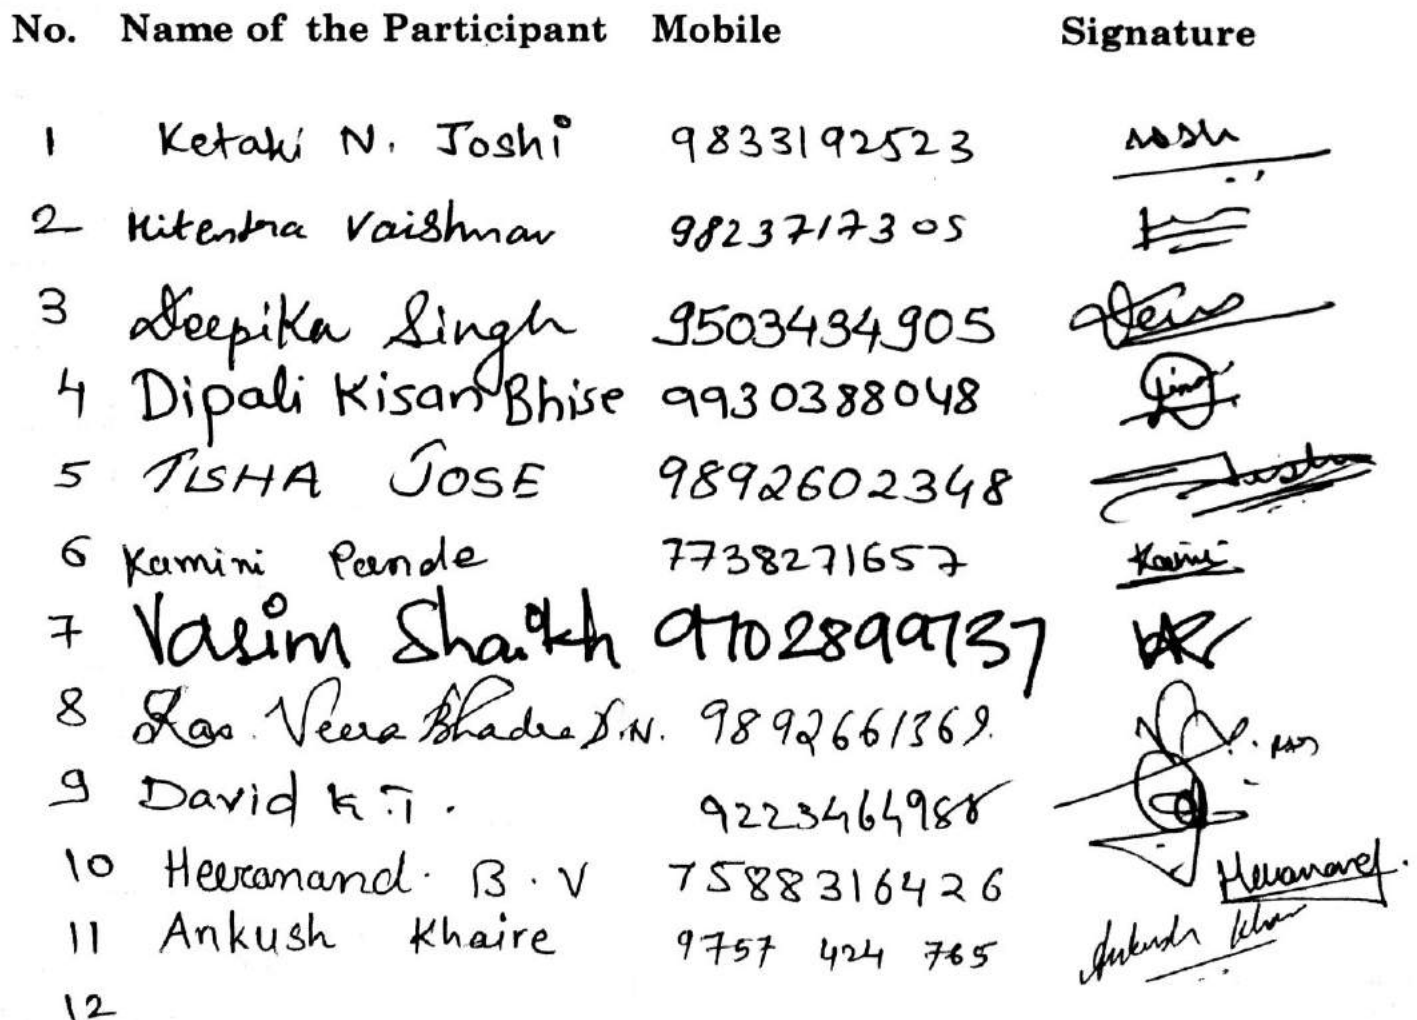 No. Name of the Participant Mobile Signature
1 Ketaki N. Joshi 9833192523
2 Hitendra Vaishnav 9823717305
3 Deepika Singh 9503434905
4 Dipali Kisan Bhise 9930388048
5 TISHA JOSE 9892602348
6 Kamini Pande 7738271657 Kamini
7 Vasim Shaikh 9702899737
8 Rao. Veera Bhadra D.N. 9892661369.
9 David K.T. 9223464988
10 Heeranand. B. V 7588316426 Heeranand.
11 Ankush Khaire 9757 424 765 Ankush Khaire
12